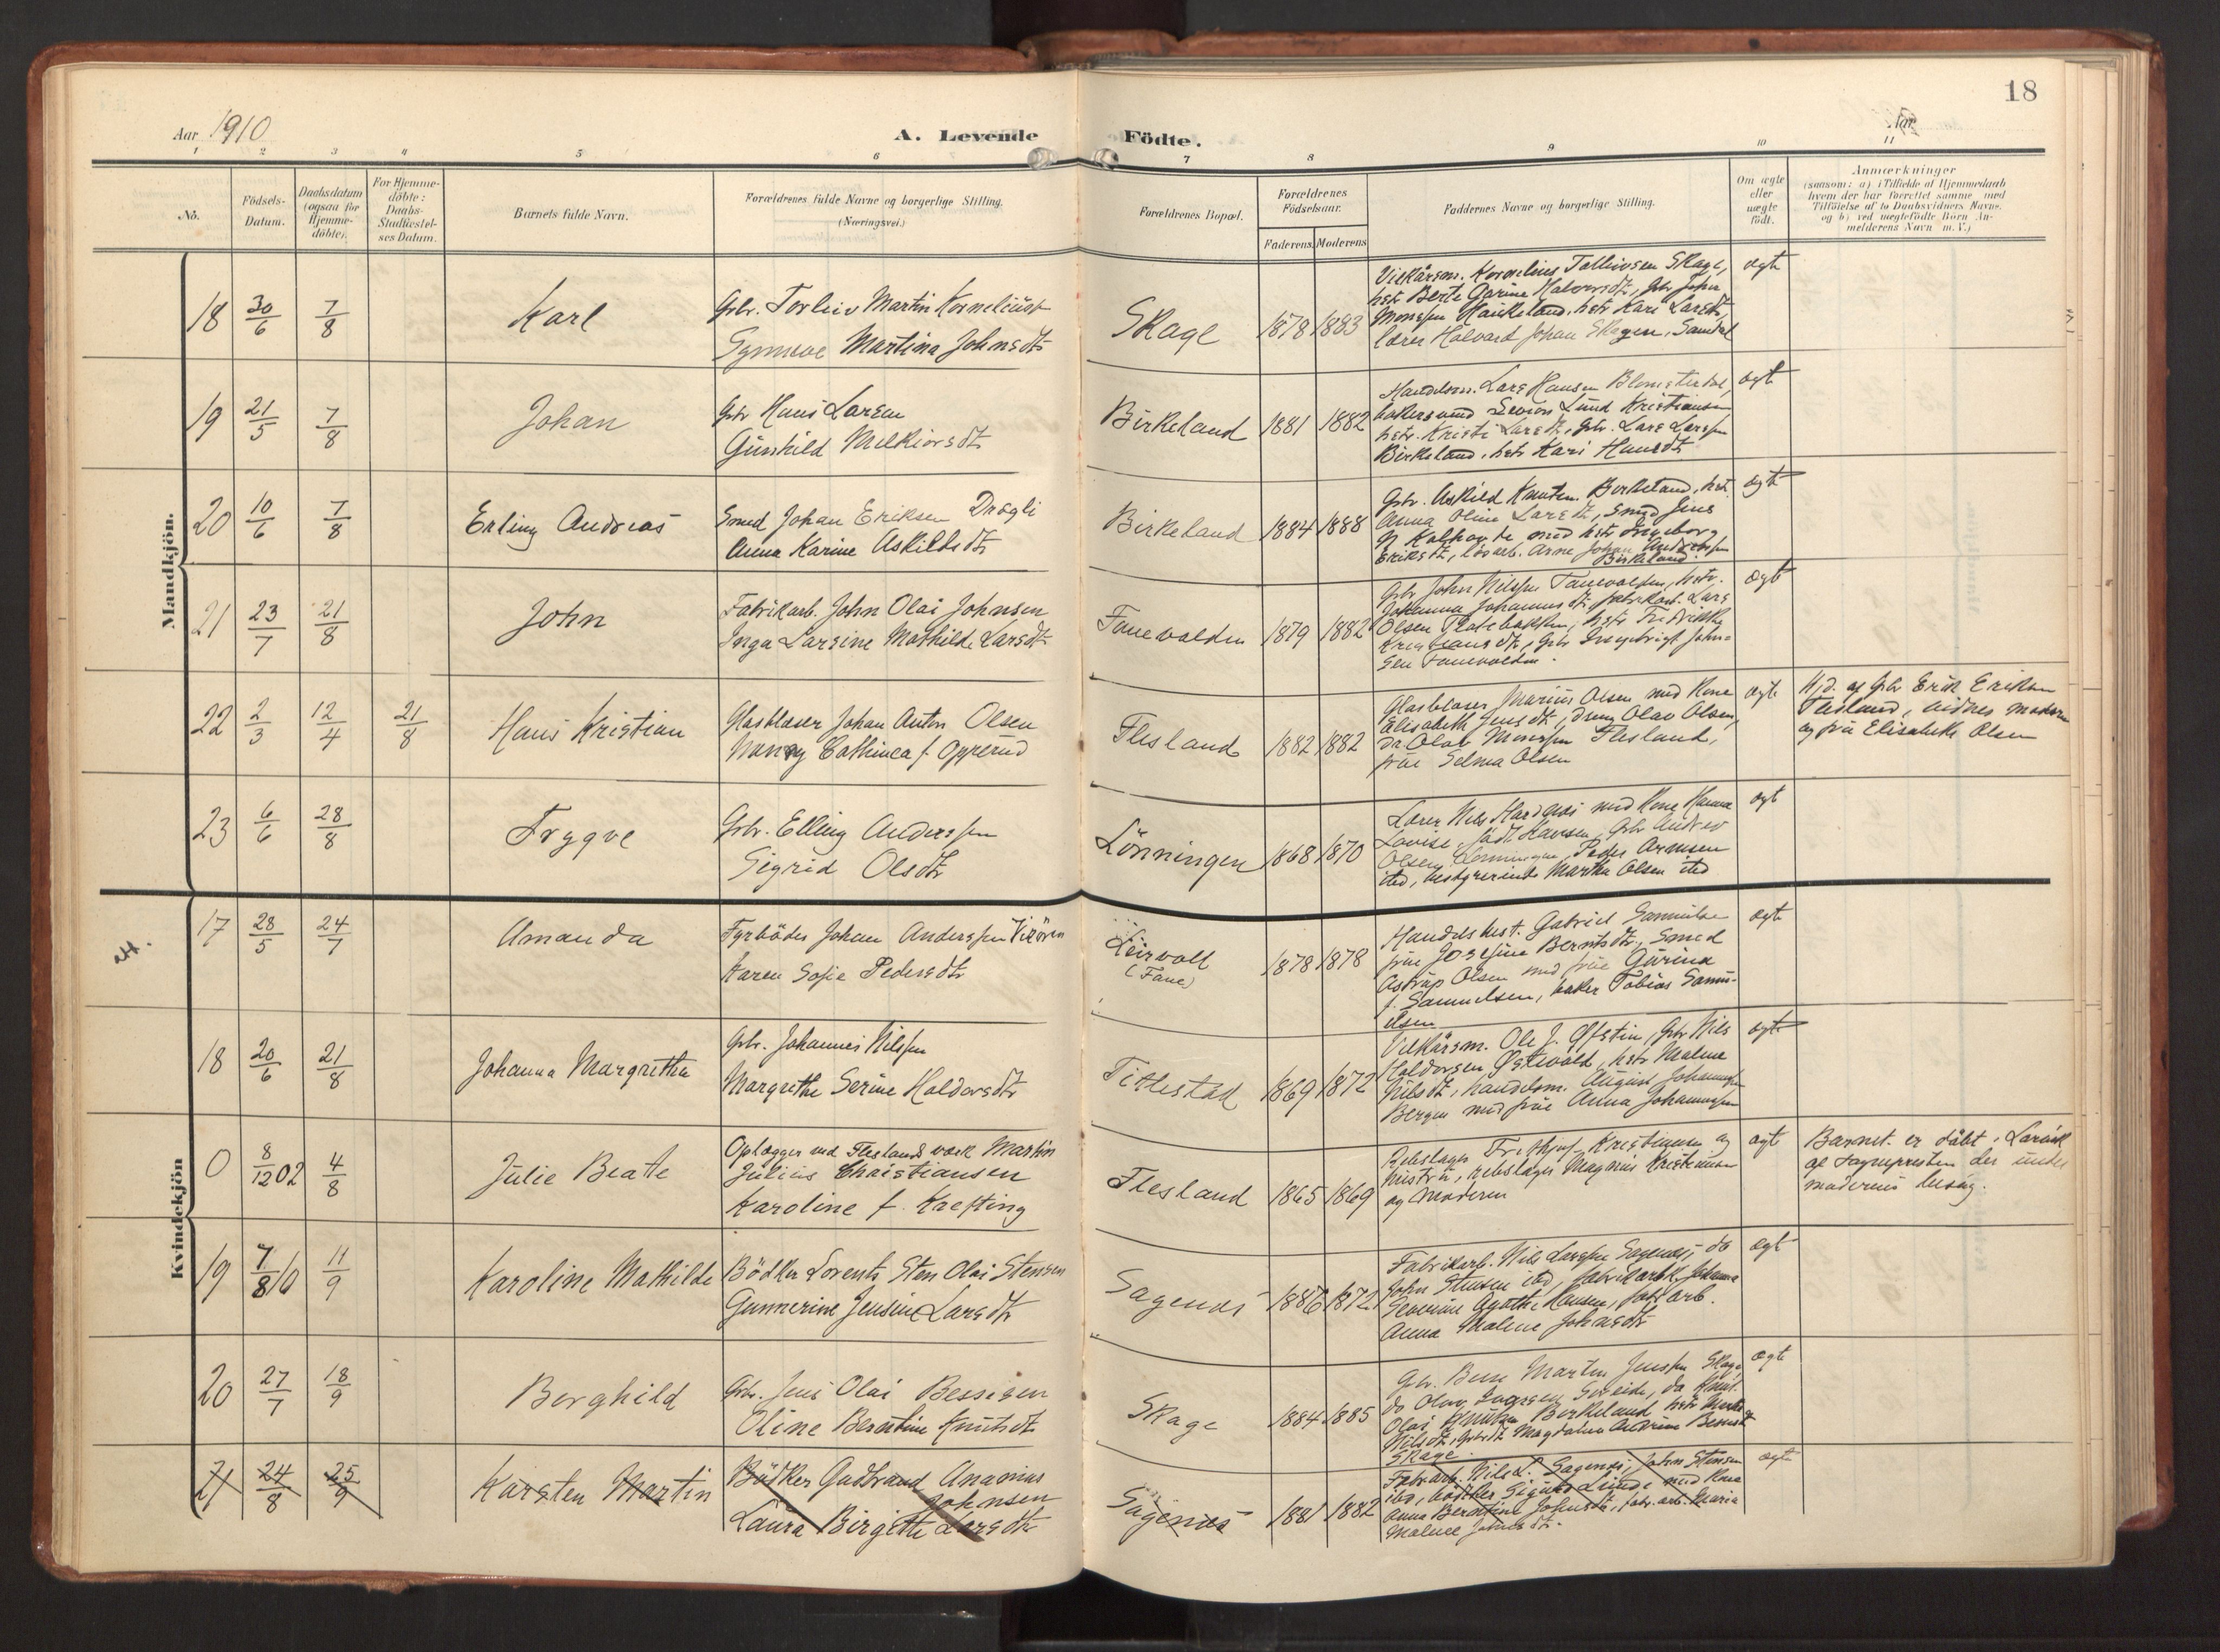 18
Aar 1910
A. Levende Födte.
Aar
1 2 3 4 5 6 7 8 9 10 11
No.
Födsels-
Datum.
Daabsdatum
(ogsaa for
Hjemme-
döbte).
For Hjemme-
döbte:
Daabs-
Stadfæstel-
ses Datum.
Barnets fulde Navn.
Forældrenes fulde Navne og borgerlige Stilling.
(Næringsvei.)
Forældrenes Bopæl.
Forældrenes
Födselsaar.
Faderens. Moderens
Faddernes Navne og borgerlige Stilling.
Om ægte
eller
uægte
födt.
Anmærkninger
(saasom: a) i Tilfælde af Hjemmedaab
hvem der har forrettet samme, med
Tilföielse af to Daabsvidners Navne,
og b) ved uægtefödte Börn An-
melderens Navn m. V.)
Mandkjön.
18 30/6 7/8
Karl
Gbr. Torleiv Martin Korneliüsen
Synneve Martina Johnsdtr
Skage
1878 1883
Vilkårsm. Kornelius Tolleivsen Skage,
hstr Berte Garine Halvorsdtr, gbr John
Monssen Haukeland, hstr Kari Larsdtr,
lærer Halvard Johan Skagen, Samdal
ægte
19 21/5 7/8
Johan
Gbr Hans Larsen
Günhild Melkiorsdtr
Birkeland
1881 1882
Handelsm. Lars Hansen Blomsterdal,
bakersvend Severin Lund Kristiansen,
hstr. Kristi Larsdtr, gbr. Lars Larssen
Birkeland, hstr Kari Hansdtr
ægte
20 10/6 7/8
Erling Andreas
Smed Johan Eriksen Drægli
Anna Karine Askildsdtr
Birkeland
1884 1888
Gbr. Askild Knutsen Birkeland, hstr
Anna Oline Larsdtr, smed Jens
med hstr Ingeborg
Eriksdtr, lösarb. Arne Johan Andersen
Birkeland
ægte
21 23/7 21/8
John
Fabrikarb. John Olai Johnsen
Inga Larsine Mathilde Larsdtr
Fanevolden
1879 1882
Gbr John Nilssen Fanevolden, hstr.
Johanna Johannesdtr, fabrikarb. Lars
Olsen, hstr Fredrikke
Kristiansdtr, gbr Ingebrigt John-
sen Fanevolden.
ægte
22 2/3 12/4 21/8
Hans Kristian
Glasblaser Johan Anton Olsen
Nanny Cathinca f. Opperud
Flesland
1882 1882
Glasblaser Marius Olsen med Kone
Elisabeth Jensdtr, dreng Olav Olsen,
do Olav Monssen Flesland,
frue Selma Olsen
ægte
Hjd. af gbr Erik Eriksen
Flesland, vidner moderen
og frue Elisabeth Olsen
23 6/6 28/8
Trygve
Gbr. Elling Anderssen
Sigrid Olsdtr
Lönningen
1868 1870
Lærer Nils Hardenes med Kone Hanna
Lovise födt Hansen, gbr Andreas
Olsen Lönningen, Peder Arnesen
ibd, bestyrerinde Martha Olsen ibd
ægte
Kvindekjön
att.
17 28/5 24/7
Amanda
Fyrböder Johan Anderssen Vixören
Karen Sofie Pedersdtr
Leirvoll
(Fane)
1878 1878
Handelsbest. Gabriel Samuelsen
frue Josefine Berntsdtr, Smed
Astrup Olsen med frue Gurine
f. Samuelsen, baker Tobias Samu-
elsen
ægte
18 20/6 21/8
Johanna Margretha
Gbr. Johannes Nilssen
Margrethe Serine Haldorsdtr
Titlestad
1869 1872
Vilkårsm. Ole J. Øfstin, gbr Nils
Haldorsen Østevold, hstr Malene
Nilsdtr, handelsm. August Johannessen
Bergen med frue Anna Johannessen
ægte
0 8/12 02 4/8
Julie Beate
Oplægger ved Flesland værk Martin
Julius Christiansen
Karoline f. Krefting
Flesland
1865 1869
Rebslager Frithjof Kristiansen og
hustru, rebslager Magnus Kristiansen
og Moderen
ægte
Barnet er döbt i Larvik
af sognepresten der under
moderens besøg.
19 7/8 10 11/9
Karoline Mathilde
Bödker Lorents Sten Olai Stensen
Gunnerine Jensine Larsdtr
Sagenes
1886 1872
Fabrikarb. Nils Larssen Sagenes, do
John Stensen ibd, fabrikarb. Johanna
Severine Agathe Hansen, fabr.arb.
Anna Malene Johnsdtr
ægte
20 27/7 18/9
Borghild
Gbr. Jens Olai Bessesen
Oline Berntine Knutsdtr
Skage
1884 1885
Gbr. Bese Martin Jenssen Skage,
do Olav Larssen Søreide, do Knut
Olai Knutsen Birkeland, hstr Marta
Nilsdtr, gbrdtr Magdalene Andrine Bessesdtr
Skage
ægte
21 24/8 25/9
Karsten Martin
Bödker Gudbrand Ananias
Johnsen
Laura Birgitte Larsdtr
Sagenes
1881 1882
Fabr.arb. Nils L. Sagenes, John Stensen
ibd, bödker Sigurd Lunde med Kone
Anna Berntine Johnsdtr, fabr. arb. Maria
Malene Johnsdtr.
ægte